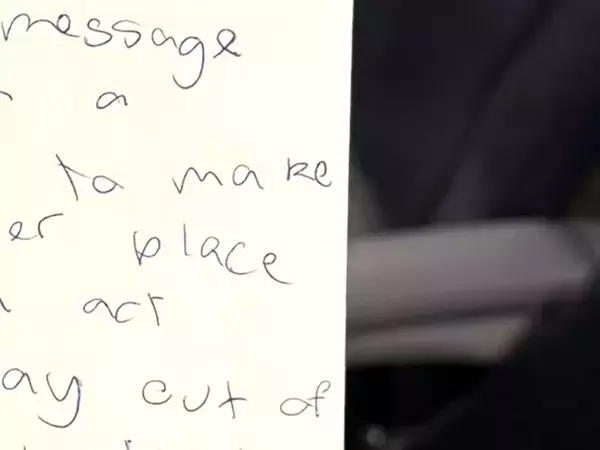 message
a
to make
er place
act
ay out of